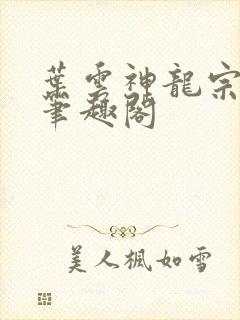 葉雲神龍宗
筆趣閣
美人楓如雪